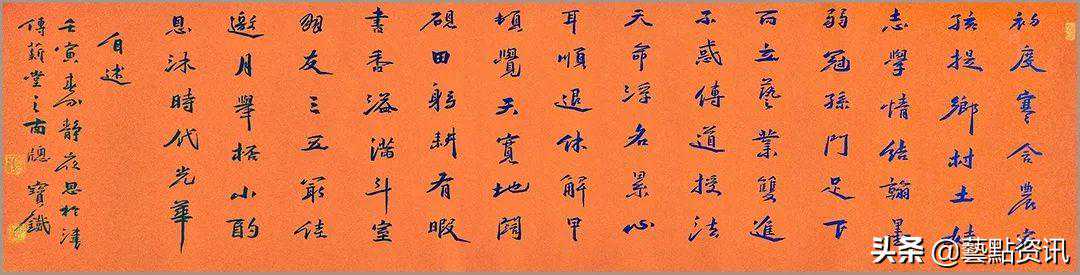 初度寒舍農家
孩提鄉村土娃
志學情結翰墨
弱冠孫門足下
而立藝業雙進
不惑傳道授法
天命浮名累心
耳順退休解甲
頓覺天寬地闊
硯田躬耕有暇
書香溢滿斗室
朋友三五佳
邀月舉杯小酌
恩沐時代光華
自述
壬寅春靜夜思於津
傳薪堂之南牕寶鐵
头条 @藝點资讯